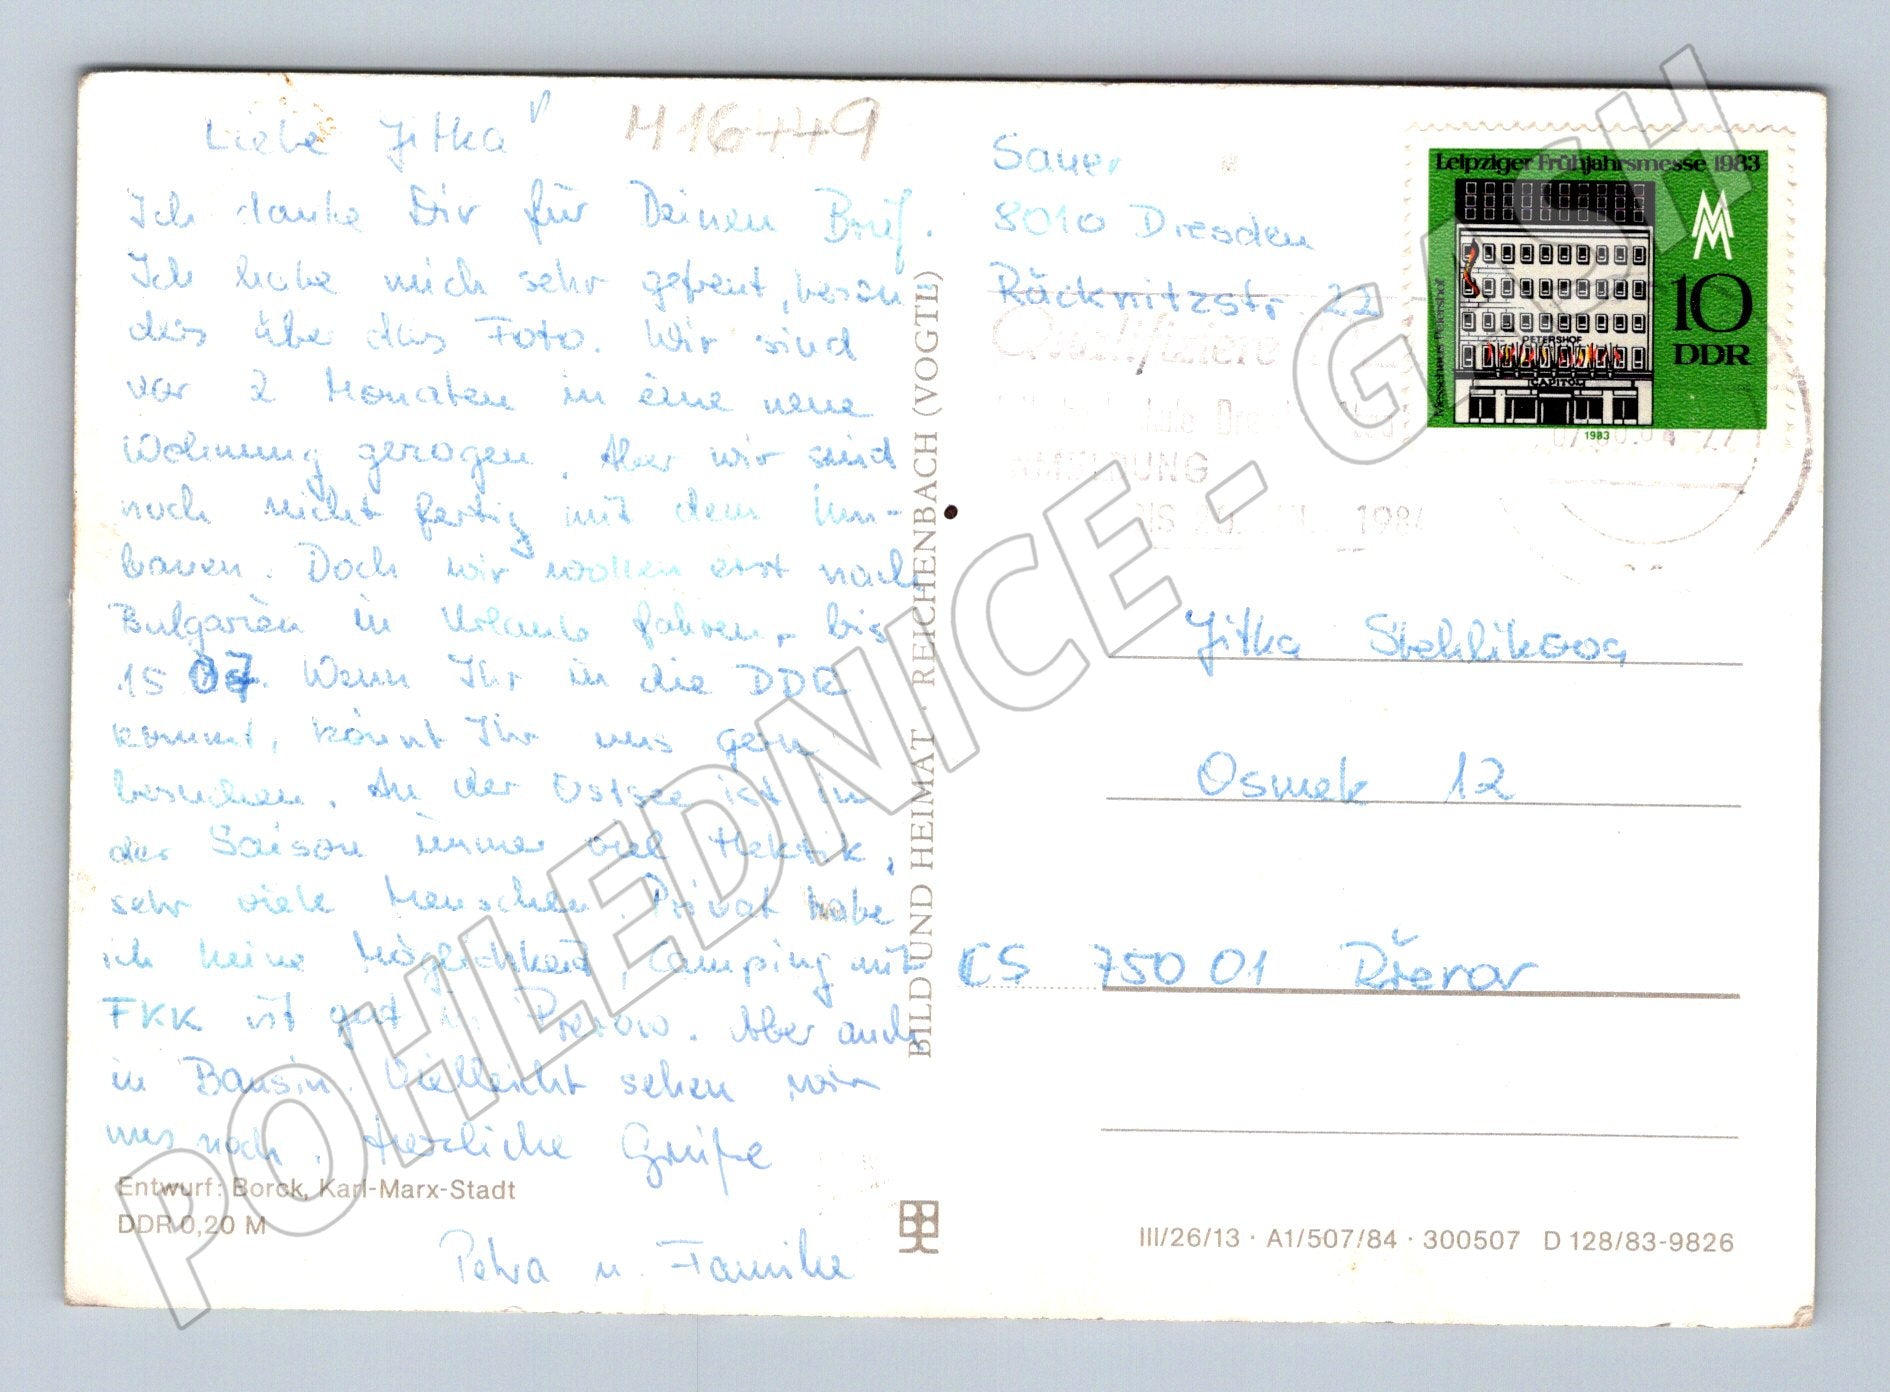 Liebe Jitka!
416449
Ich danke Dir für Deinen Brief.
Ich habe mich sehr gefreut, beson-
ders über das Foto. Wir sind
vor 2 Monaten in eine neue
Wohnung gezogen. Aber wir sind
noch nicht fertig mit dem Um-
bauen. Doch wir wollen erst nach
Bulgarien in Urlaub fahren, bis
15.07. Wenn Ihr in die DDR
kommt, könnt Ihr uns gern
besuchen. An der Ostsee ist in
der Saison immer viel Hektik,
sehr viele Menschen. Privat habe
ich keine Möglichkeit, Camping mit
FKK ist gut in Prerow. Aber auch
in Bansin. Vielleicht sehen wir
uns noch. Herzliche Grüße
Petra u. Familie
Entwurf: Borck, Karl-Marx-Stadt
DDR 0,20 M
BILD UND HEIMAT · REICHENBACH (VOGTL)
Sauer
8010 Dresden
Räcknitzstr. 22
Leipziger Frühjahrsmesse 1983
Messehaus Petershof
PETERSHOF
CAPITOL
10
DDR
1983
Qualifiziere
ANMELDUNG
1984
Jitka Stehlikova
Osmek 12
CS 750 01 Přerov
III/26/13 · A1/507/84 · 300507 D 128/83-9826
POHLEDNICE - GASH